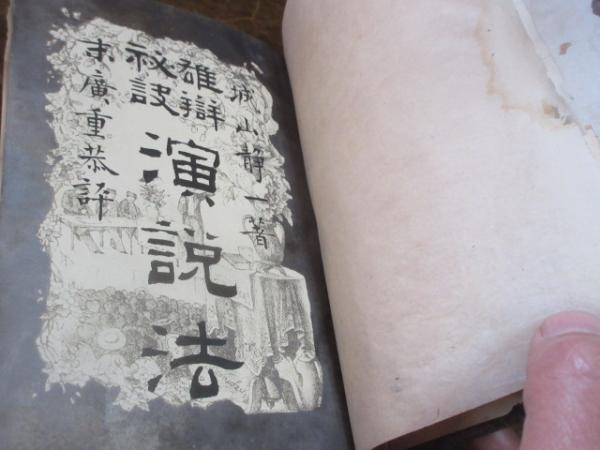 城山靜一著
雄辯
祕訣
演説法
末廣重恭評